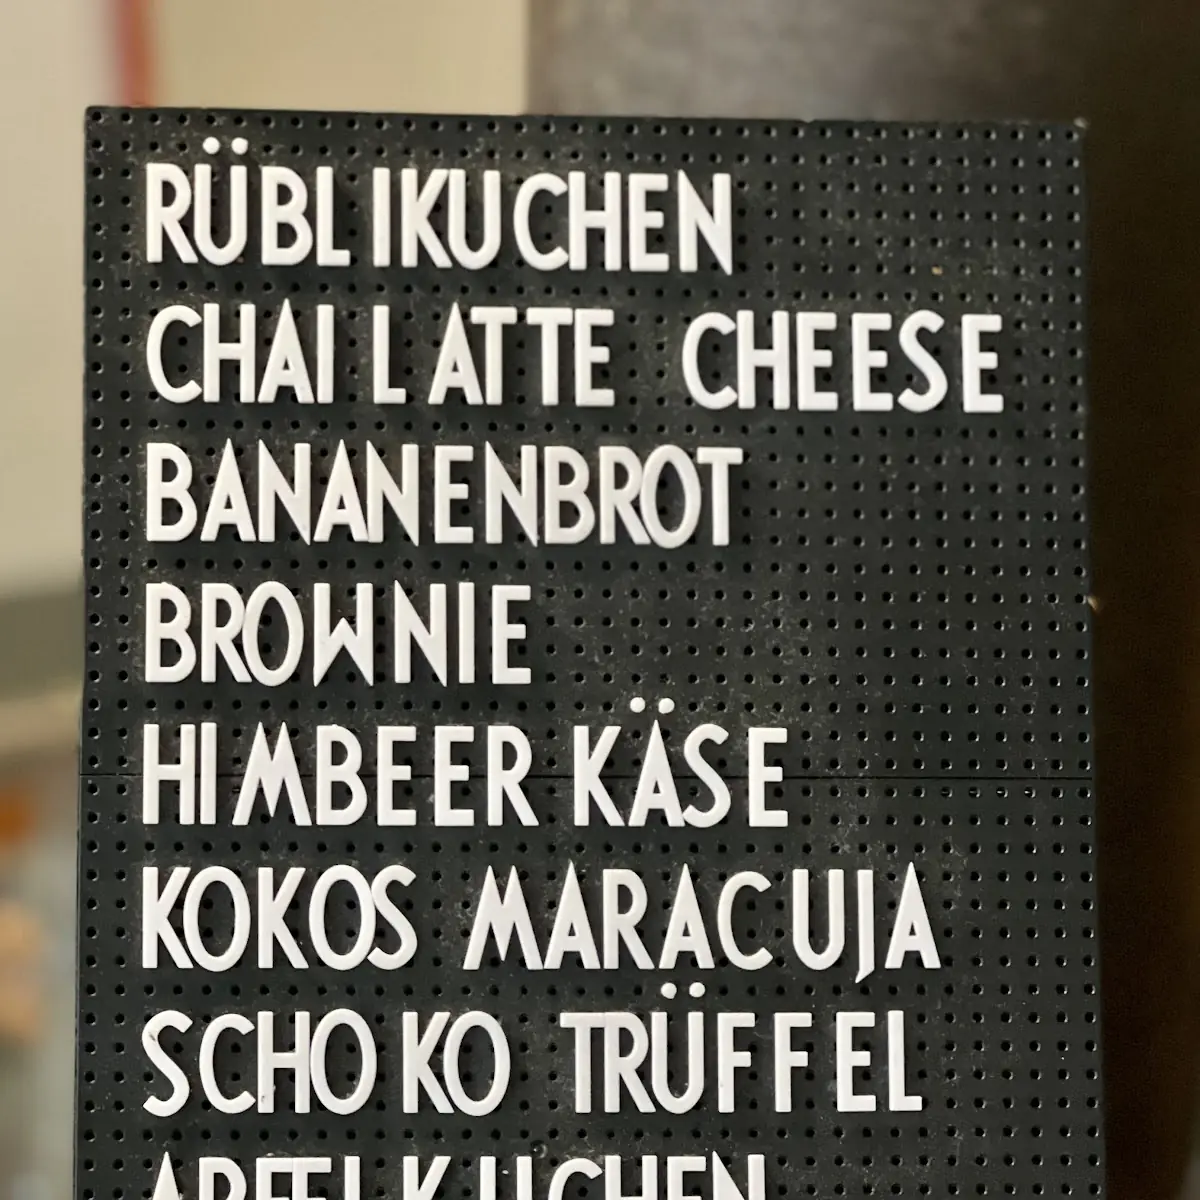 RÜBLIKUCHEN
CHAI LATTE CHEESE
BANANENBROT
BROWNIE
HIMBEER KÄSE
KOKOS MARACUJA
SCHOKO TRÜFFEL
APFELKUCHEN